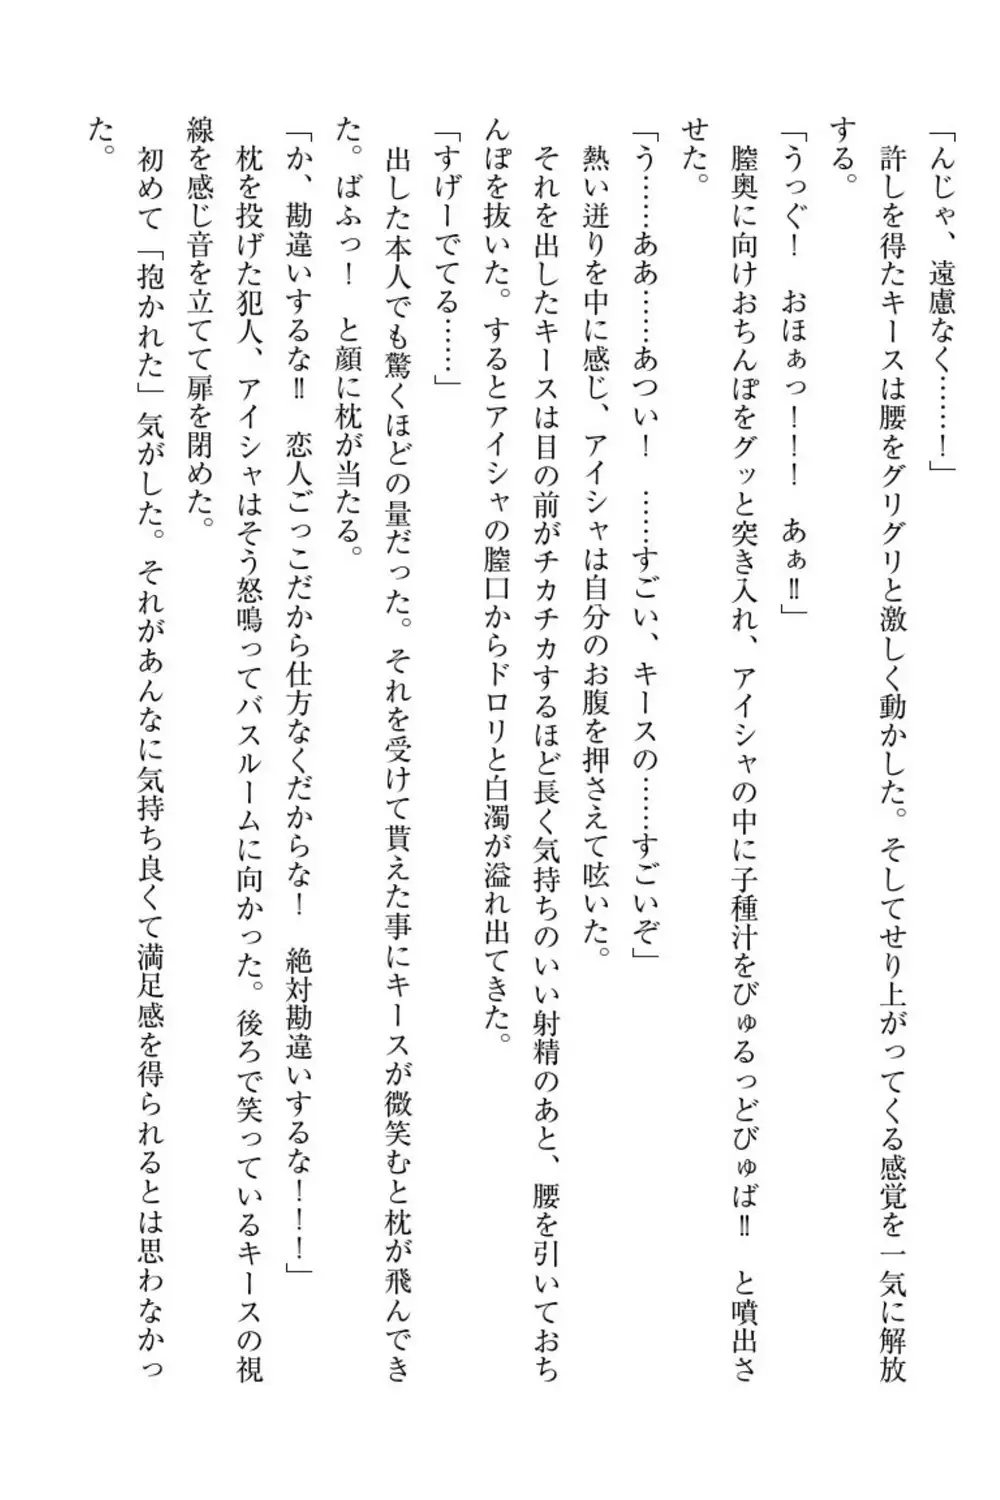 「んじゃ、遠慮なく……！」
　許しを得たキースは腰をグリグリと激しく動かした。そしてせり上がってくる感覚を一気に解放
する。
「うっぐ！　おほぁっ！！！　あぁ‼」
　膣奥に向けおちんぽをグッと突き入れ、アイシャの中に子種汁をびゅるっどびゅば‼　と噴出さ
せた。
「う……ああ……あつい！　……すごい、キースの……すごいぞ」
　熱い迸りを中に感じ、アイシャは自分のお腹を押さえて呟いた。
　それを出したキースは目の前がチカチカするほど長く気持ちのいい射精のあと、腰を引いておち
んぽを抜いた。するとアイシャの膣口からドロリと白濁が溢れ出てきた。
「すげーでてる……」
　出した本人でも驚くほどの量だった。それを受けて貰えた事にキースが微笑むと枕が飛んでき
た。ばふっ！　と顔に枕が当たる。
「か、勘違いするな‼　恋人ごっこだから仕方なくだからな！　絶対勘違いするな！！！」
　枕を投げた犯人、アイシャはそう怒鳴ってバスルームに向かった。後ろで笑っているキースの視
線を感じ音を立てて扉を閉めた。
　初めて「抱かれた」気がした。それがあんなに気持ち良くて満足感を得られるとは思わなかっ
た。